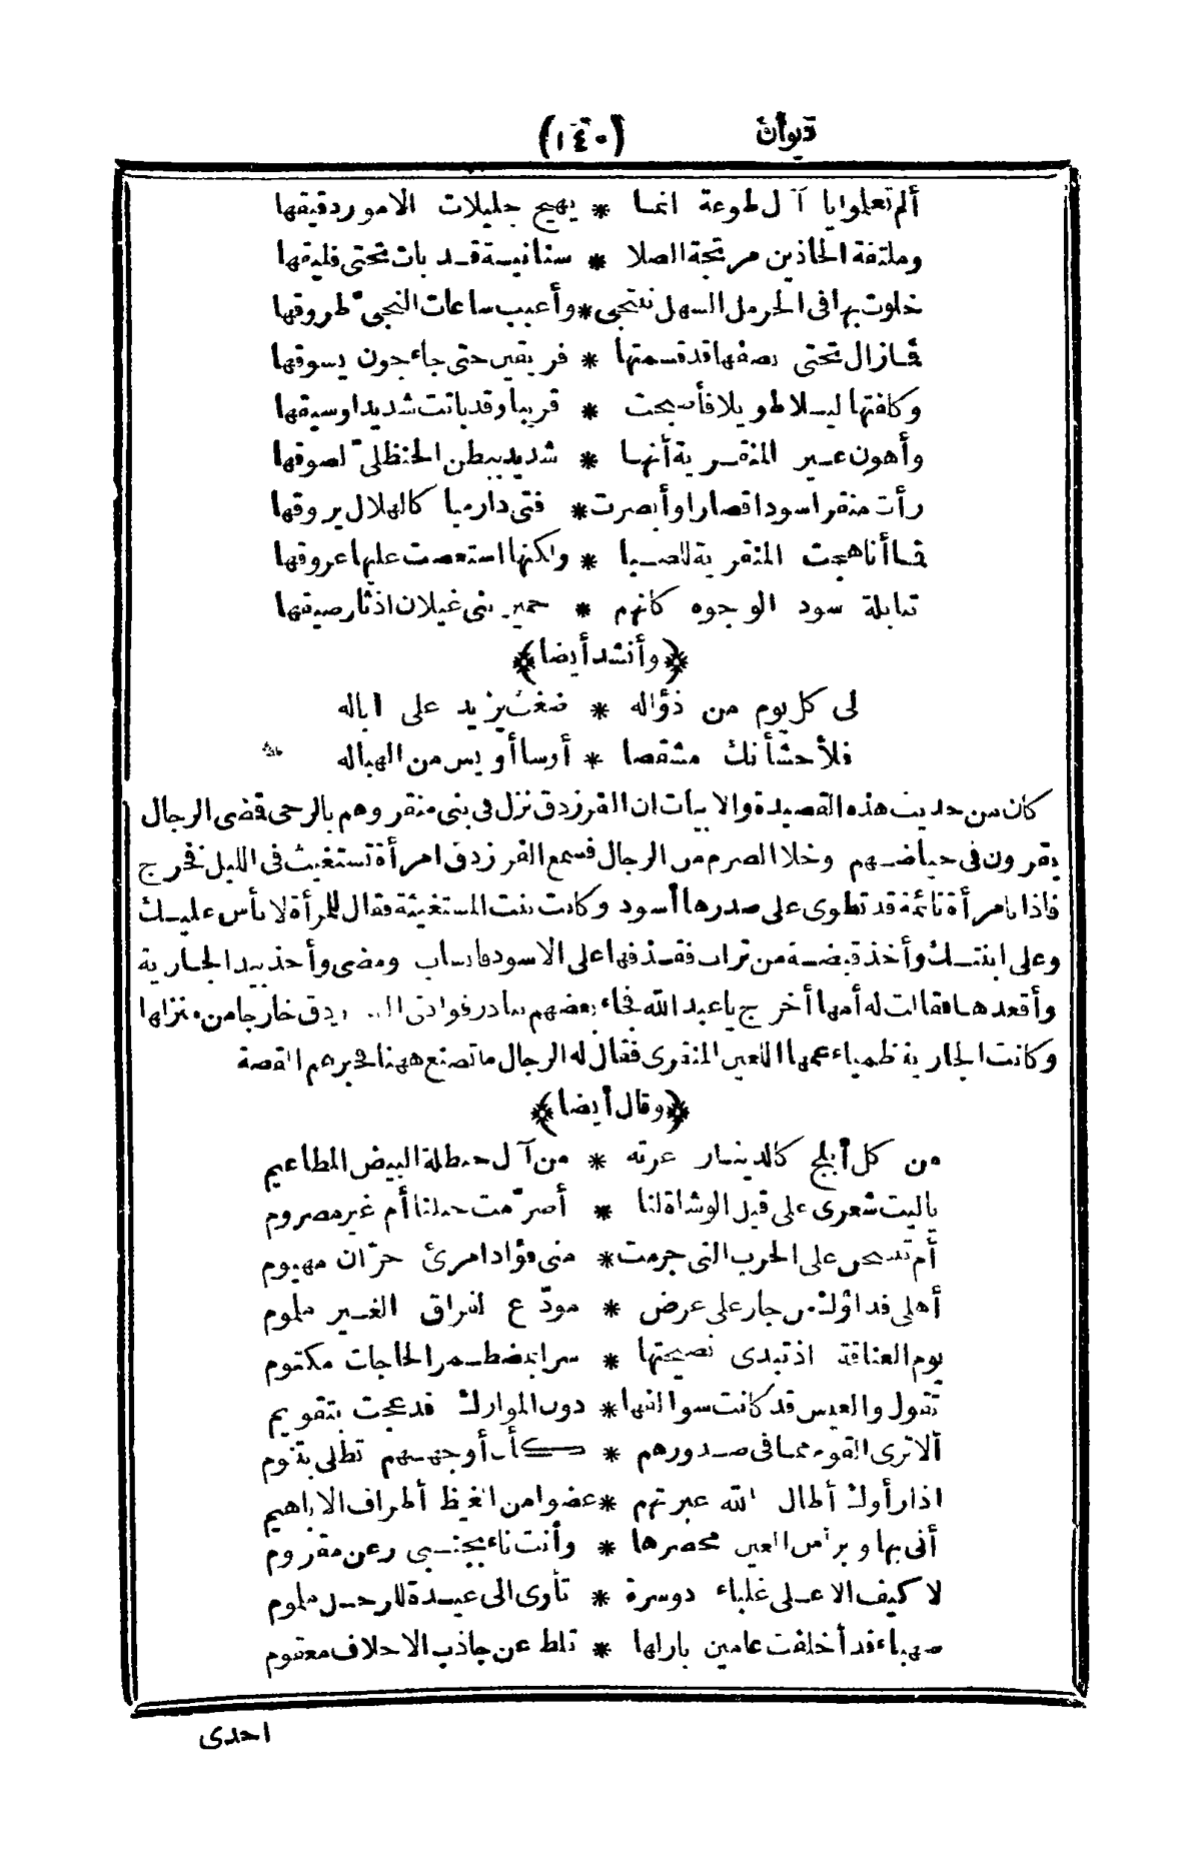 ديوان (١٤٠)
ألم تعلوا يا آل طوعة انما * يهيج جليلات الامور دقيقها
وملتفة الحاذين مرتجة الصلا * سنانيسة قد بات تحتى فليقها
خلوت بها فى الحرمل السهل ننتجى * وأعيب ساعات النجىّ طروقها
فما زال تحتى نصفها قد قسمتها * فريقين حتى جاء جون يسوقها
وكافتها ليلا طويلا فأصبحت * قريبا وقد باتت شديدا وسيقها
وأهون عير المنقرية أنها * شديد ببطن الحنظلىّ لصوقها
رأت منقرا سودا قصارا وأبصرت * فتى دارميا كالهلال يروقها
فما أنا هجت المنقرية للصبا * ولكنها استعصت عليها عروقها
تبابلة سود الوجوه كأنهم * حمير بنى غيلان اذ ثار صيقها
﴿وأنشد أيضا﴾
لى كل يوم من ذؤاله * ضغث يزيد على اباله
فلأحشأنك مشقصا * أوسا أويس من الهباله
كان من حديث هذه القصيدة والابيات ان الفرزدق نزل فى بنى منقر وهم بالرحى فضى الرجال
يقرون فى حياضهم وخلا الصرم من الرجال فسمع الفرزدق امرأة تستغيث فى الليل فخرج
فاذا بامرأة نائمة قد تطوى على صدرها أسود وكانت بنت المستغيثة فقال للمرأة لا بأس عليك
وعلى ابنتك وأخذ قبضة من تراب فقذفها على الاسود فانساب ومضى وأخذ بيد الجارية
وأقعدها فقالت له أمها أخرج يا عبد الله فجاء بعضهم خارجا من منزلها
وكانت الجارية ظمياء عمها اللعين المنقرى فقال له الرجال ما تصنع ههنا فخبرهم القصة
﴿وقال أيضا﴾
من كل أبلج كالدينار غرته * من آل حنظلة البيض المطاعيم
ياليت شعرى على قيل الوشاة لنا * أصرّمت حبلنا أم غير مصروم
أم تنشحن على الحرب التى جرمت * منى فؤاد امرئ حرّان مهيوم
أهلى فداؤك من جار على عرض * مودّع لفراق الغير ملوم
يوم العناقة اذ تبدى نصيحتها * سرا بمضطمر الحاجات مكتوم
تقول والعيس قد كانت سوالفها * دون الموارك قد عجت بتقويم
ألا ترى القوم مما فى صدورهم * كأن أوجههم تطلى بتنوم
اذا رأوك أطال الله غيرتهم * عضوا من الغيظ أطراف الاباهيم
أنى بها وبرأس العين محضرها * وأنت ناء بجنبى رعن مقروم
لا كيف الا على غلباء دوسرة * تأوى الى عيدة للرحل ملوم
صهباء قد أخلفت عامين بازلها * تلط عن جاذب الاخلاف معقوم
احدى